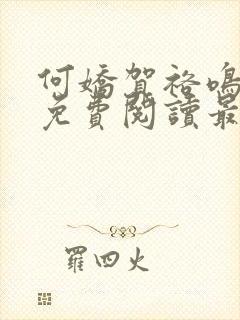 何嬌賀裕鳴
免費閱讀最
羅四火